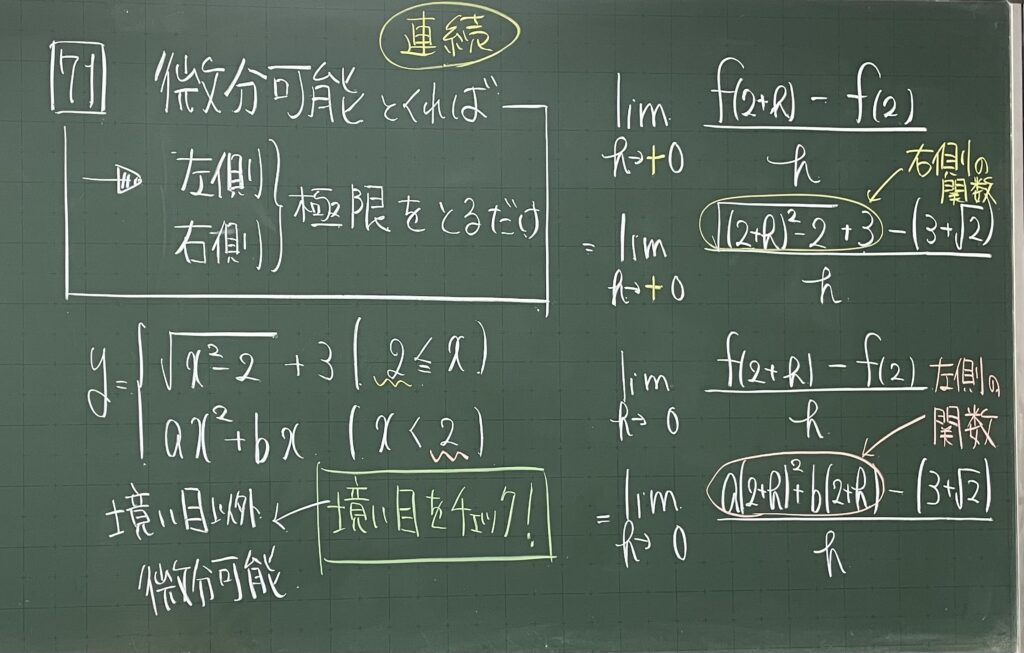 連続
71 微分可能とくれば
左側
右側
極限をとるだけ
y=
√x²-2 + 3 (2≦x)
ax²+bx (x<2)
境い目以外
微分可能
境い目をチェック!
lim h→+0 f(2+h) - f(2) / h
右側の
関数
= lim h→+0 √(2+h)²-2 + 3 - (3+√2) / h
lim h→ 0 f(2+h) - f(2) / h
左側の
関数
= lim h→ 0 a(2+h)²+b(2+h) - (3+√2) / h